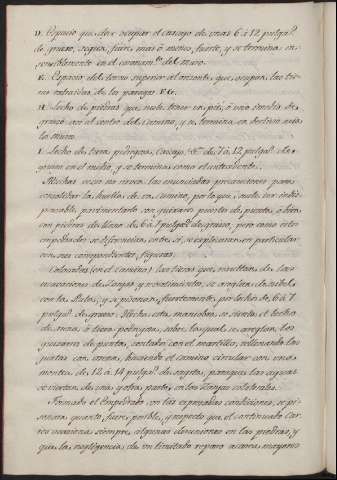 D. Espacio que debe ocupar el cascajo de unas 6 á 12 pulgs.
de grueso, segun fuere mas ó menos fuerte, y se termina en
sensiblemente en el coronamto. del muro.
E. Espacio del trozo superior al orizonte, que ocupan las tie
rras extraidas de los parages F.G.
H. Lecho de piedras que suele tener un pie, ó uno y medio de
grueso acia el centro del Camino, y se termina en declivio acia
la muro.
I. Lecho de tierra pedregosa, Cascajo, &a. de 7 á 12 pulgs. de
grueso en el medio, y se termina como el antecedente.
Muchas veces no sirven las enunciadas precauciones para
consolidar la huella de un camino, por lo que, suele ser indis
pensable, pavimentarlo con guixarros puestos de punta, ó bien
con piedras de llano de 6 á 7 pulgs. de grueso, pero como estos
empedrados se diferencian entre si, se explicaran en particular
con sus correspondientes figuras.
Colocadas (en el camino) las tierras que resultan de las ex
cavaciones de Zanjas, y desmontes, se arreglan á nibel
con la Pala, y se pisonan fuertemente por lechos de 6 á 7
pulgs. de grueso. Hecha esta maniobra, se sienta el lecho
de arena, ó tierra pedregosa, sobre la qual se arreglan los
guixarros de punta, sentados con el martillo, rellenando las
juntas con arena, haciendo el camino circular con una
montea de 12 á 14 pulgs. de sagita, para que las aguas
se viertan de una y otra parte, en las Zanjas colaterales.
Formado el Empedrado con las expresadas condiciones, se pi
sonara quanto fuere posible, y respecto que el continuado Car
reo ocasiona siempre algunas desuniones en las piedras, y
que la negligencia de un limitado reparo acarrea mayores